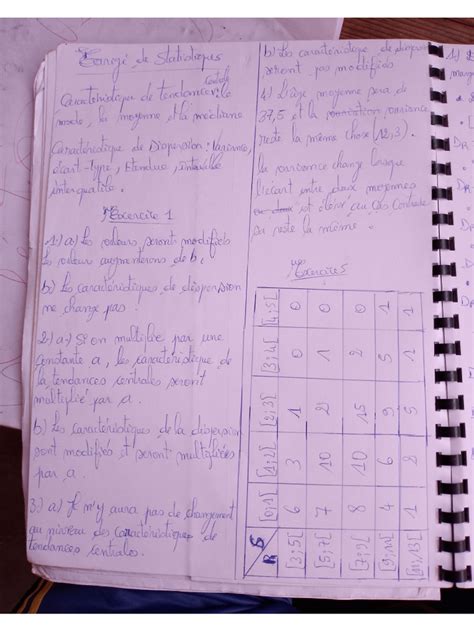 Corrigé de Statistiques
Caractéristique de tendance centrale
mode, la moyenne et la médiane
Caractéristique de Dispersion : Variance,
écart-Type, Etendue, intervalle
interquartile.
Exercice 1
1) a) Les valeurs seront modifiés
Les valeur augmenterons de b.
b) Les caractéristiques de dispersion
ne change pas
2) a) Si on multiplie par une
constante a, les caractéristique de
la tendances centrales seront
multiplié par a.
b) Les caractéristiques de la dispersion
sont modifiés et seront multipliées
par a.
3) a) Il n'y aura pas de changement
au niveau des caractéristiques de
tendances centrales.
b) Les caractéristique de dispersion
seront pas modifiés
4) L'âge moyenne sera de
37,5 et la variance
reste la même chose (12,3).
la variance change lorsque
l'écart entre deux moyennes
est élevé au cas contraire
sa reste la même.
Exercice 5
S R [0;1[ [1;2[ [2;3[ [3;4[ [4;5[
[3;5[ 6 3 1 0 0
[5;7[ 7 10 2 1 0
[7;9[ 8 10 15 2 0
[9;11[ 4 6 9 5 1
[11;13[ 1 2 5 1 1